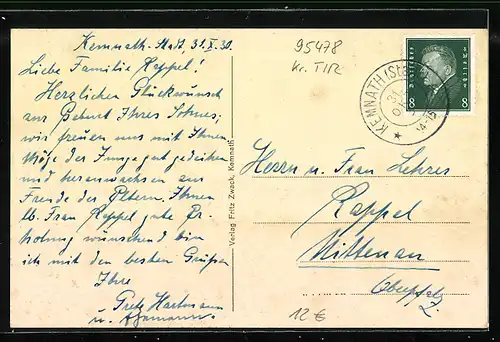 Kemnath-Stadt, 31.X.30.
Liebe Familie Rappel!
Herzlichen Glückwunsch
zur Geburt Ihres Sohnes;
wir freuen uns mit Ihnen
Möge der Junge gut gedeihen
und heranwachsen zur
Freude der Eltern. Ihnen
lb. Frau Rappel gute Er-
holung wünschend bin
ich mit den besten Grüßen
Ihre
Hartmann
u.
Verlag Fritz Zwack, Kemnath
95478
Kr. TIR
KEMNATH (ST
31
8 8
Herrn u. Frau Lehrer
Rappel
Nittenau
Oberpfalz
12 €